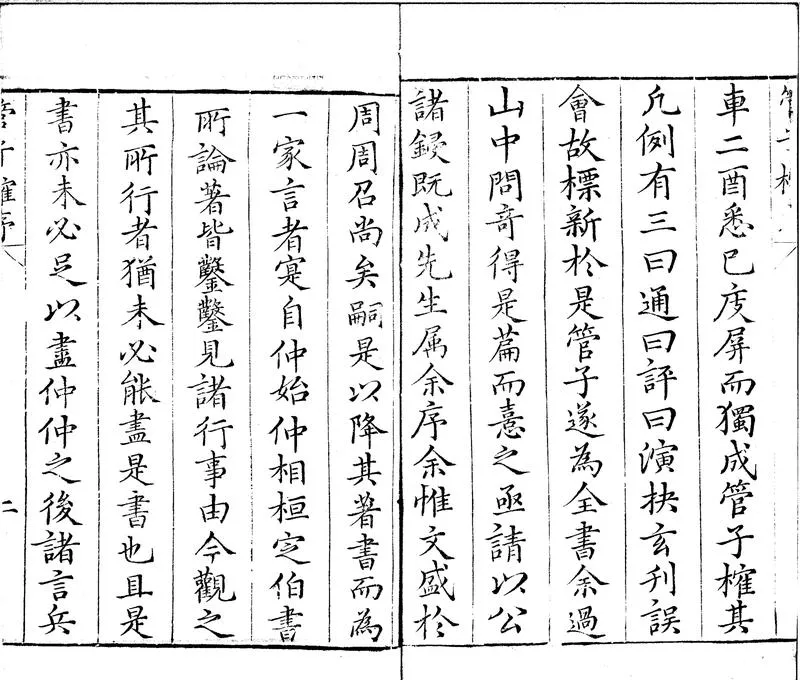 車二酉悉已庋屏而獨成管子榷其
凡例有三曰通曰評曰演抉玄刋誤
會故標新於是管子遂為全書余過
山中問竒得是篇而憙之亟請以公
諸鋟既成先生属余序余惟文盛於
周周召尚矣嗣是以降其著書而為
一家言者寔自仲始仲相桓定伯書
所論著皆鑿鑿見諸行事由今觀之
其所行者猶未必能盡是書也且是
書亦未必足以盡仲仲之後諸言兵
管子榷序 二